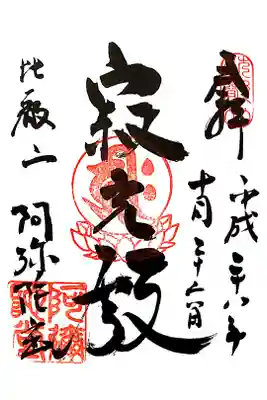 奉拝
平成二十八年
十月
寂光殿
比叡山
阿弥陀堂